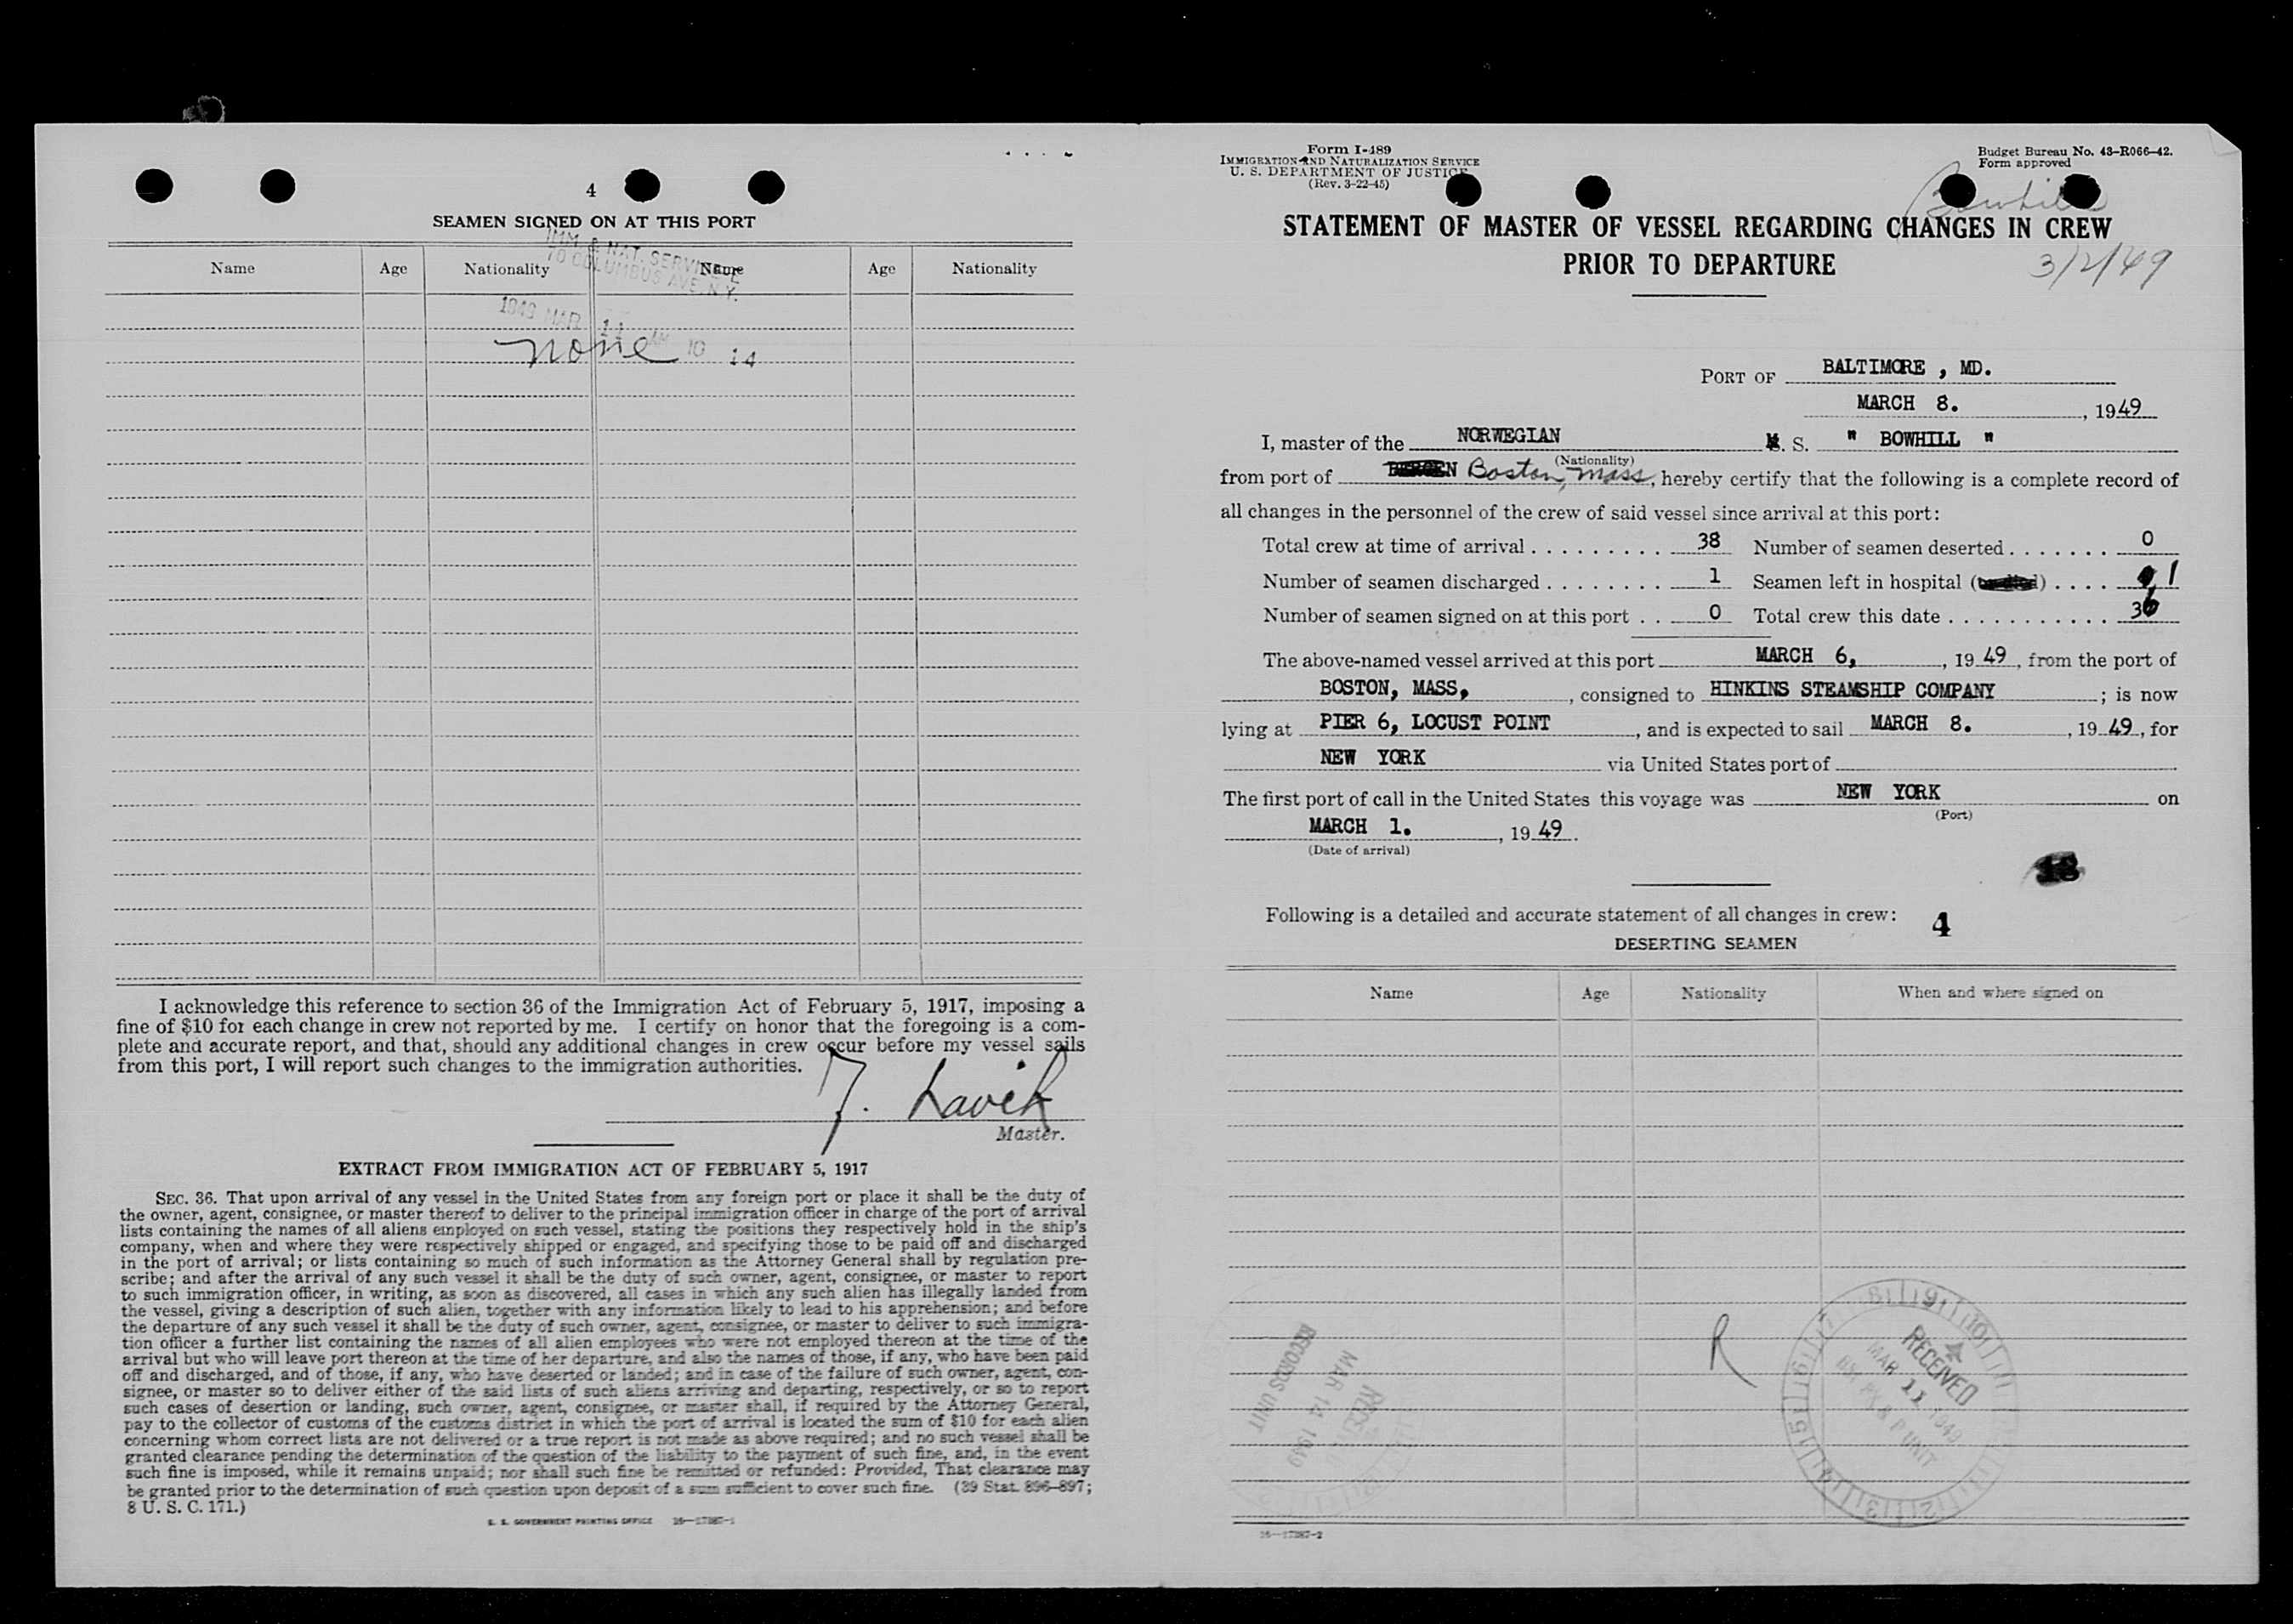 4
SEAMEN SIGNED ON AT THIS PORT
Name Age Nationality Name Age Nationality
IMM. & NAT. SERVICE
70 COLUMBUS AVE. N.Y.
1949 MAR 11 AM 10 14
none
I acknowledge this reference to section 36 of the Immigration Act of February 5, 1917, imposing a
fine of $10 for each change in crew not reported by me. I certify on honor that the foregoing is a com-
plete and accurate report, and that, should any additional changes in crew occur before my vessel sails
from this port, I will report such changes to the immigration authorities.
Master.
EXTRACT FROM IMMIGRATION ACT OF FEBRUARY 5, 1917
SEC. 36. That upon arrival of any vessel in the United States from any foreign port or place it shall be the duty of
the owner, agent, consignee, or master thereof to deliver to the principal immigration officer in charge of the port of arrival
lists containing the names of all aliens employed on such vessel, stating the positions they respectively hold in the ship's
company, when and where they were respectively shipped or engaged, and specifying those to be paid off and discharged
in the port of arrival; or lists containing so much of such information as the Attorney General shall by regulation pre-
scribe; and after the arrival of any such vessel it shall be the duty of such owner, agent, consignee, or master to report
to such immigration officer, in writing, as soon as discovered, all cases in which any such alien has illegally landed from
the vessel, giving a description of such alien, together with any information likely to lead to his apprehension; and before
the departure of any such vessel it shall be the duty of such owner, agent, consignee, or master to deliver to such immigra-
tion officer a further list containing the names of all alien employees who were not employed thereon at the time of the
arrival but who will leave port thereon at the time of her departure, and also the names of those, if any, who have been paid
off and discharged, and of those, if any, who have deserted or landed; and in case of the failure of such owner, agent, con-
signee, or master so to deliver either of the said lists of such aliens arriving and departing, respectively, or so to report
such cases of desertion or landing, such owner, agent, consignee, or master shall, if required by the Attorney General,
pay to the collector of customs of the customs district in which the port of arrival is located the sum of $10 for each alien
concerning whom correct lists are not delivered or a true report is not made as above required; and no such vessel shall be
granted clearance pending the determination of the question of the liability to the payment of such fine, and, in the event
such fine is imposed, while it remains unpaid; nor shall such fine be remitted or refunded: Provided, That clearance may
be granted prior to the determination of such question upon deposit of a sum sufficient to cover such fine. (39 Stat. 896-897;
8 U. S. C. 171.)
U. S. GOVERNMENT PRINTING OFFICE 16-17387-1
Form I-489
IMMIGRATION AND NATURALIZATION SERVICE
U. S. DEPARTMENT OF JUSTICE
(Rev. 3-22-45)
Budget Bureau No. 43-R066-42.
Form approved
Bowhill
STATEMENT OF MASTER OF VESSEL REGARDING CHANGES IN CREW
PRIOR TO DEPARTURE
3/2/49
PORT OF BALTIMORE , MD.
MARCH 8. , 1949
I, master of the NORWEGIAN M. S. " BOWHILL "
(Nationality)
from port of Boston, Mass, hereby certify that the following is a complete record of
all changes in the personnel of the crew of said vessel since arrival at this port:
Total crew at time of arrival . . . . . . . . . . 38 Number of seamen deserted . . . . . . . 0
Number of seamen discharged . . . . . . . . . 1 Seamen left in hospital ( ) . . . . 1
Number of seamen signed on at this port . . 0 Total crew this date . . . . . . . . . . . . 36
The above-named vessel arrived at this port MARCH 6, , 19 49, from the port of
BOSTON, MASS, , consigned to HINKINS STEAMSHIP COMPANY ; is now
lying at PIER 6, LOCUST POINT , and is expected to sail MARCH 8. , 19 49, for
NEW YORK via United States port of
The first port of call in the United States this voyage was NEW YORK on
(Port)
MARCH 1. , 19 49.
(Date of arrival)
Following is a detailed and accurate statement of all changes in crew: 4
DESERTING SEAMEN
Name Age Nationality When and where signed on
R
RECEIVED
MAR 11 1949
RECORDS UNIT
MAR 14 1949
16-17387-2